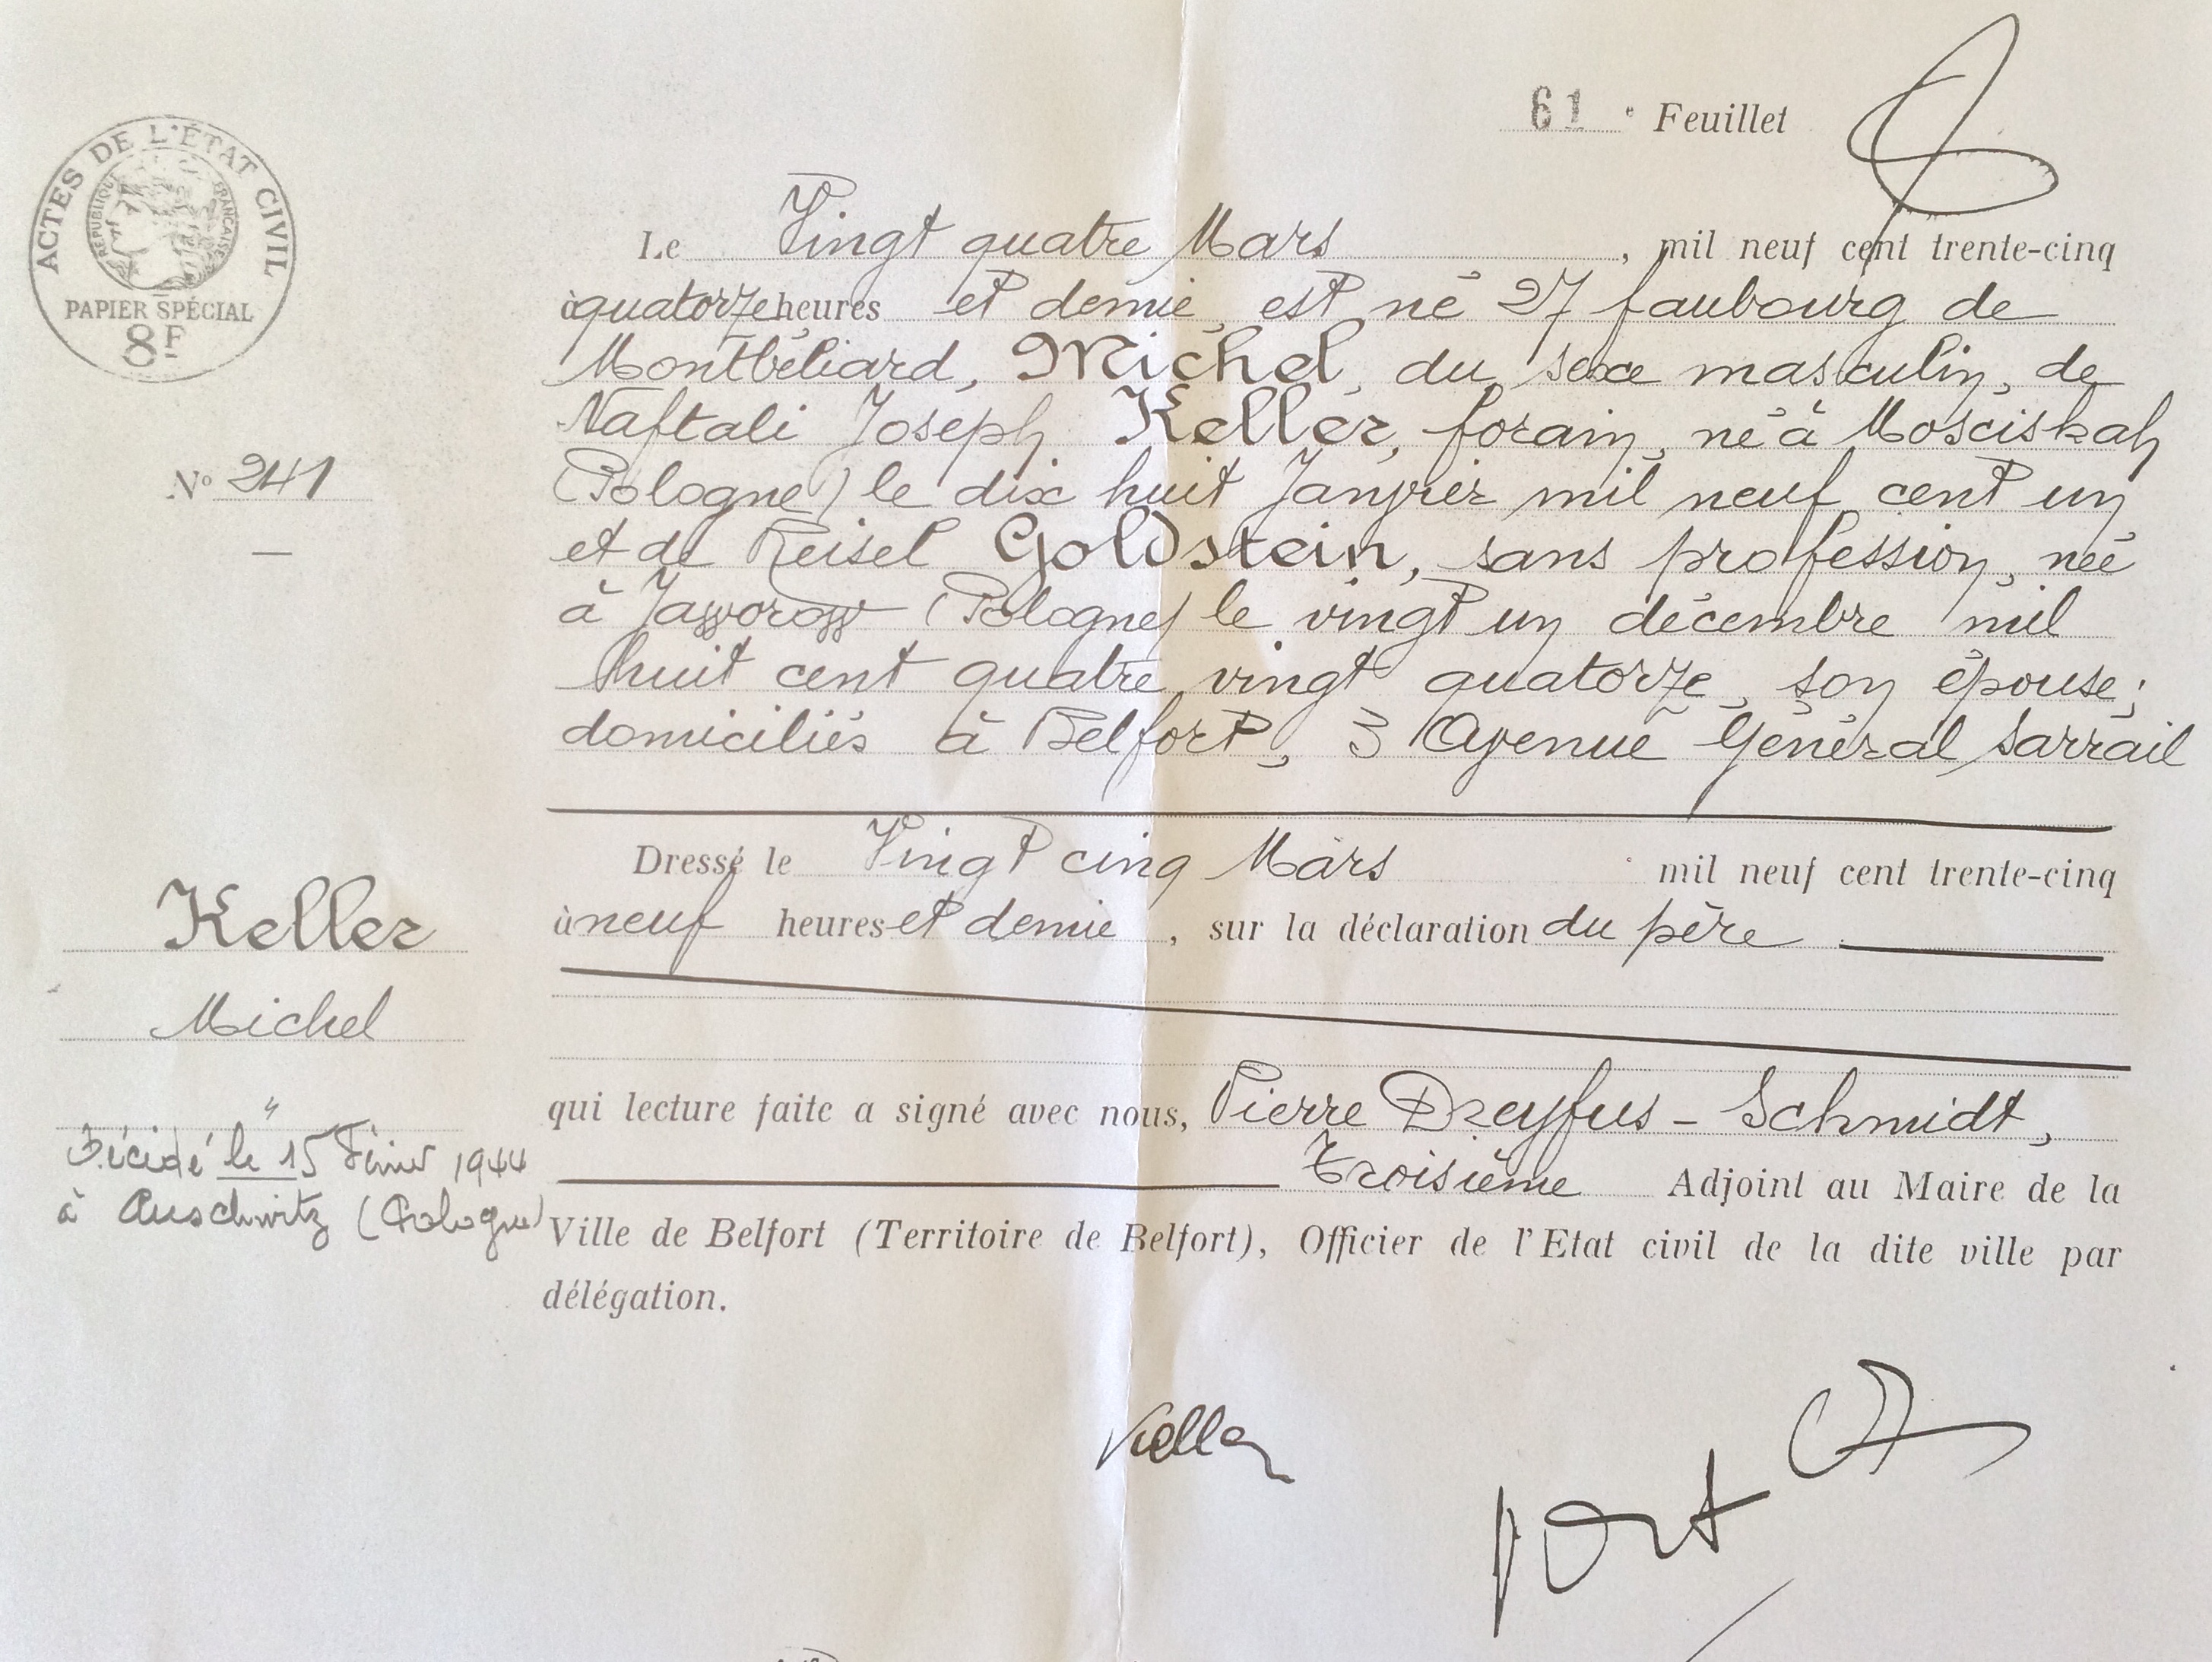 61 e Feuillet
ACTES DE L'ÉTAT CIVIL
RÉPUBLIQUE FRANÇAISE
PAPIER SPÉCIAL
8F
Le Vingt quatre Mars, mil neuf cent trente-cinq
à quatorze heures et demie, est né 27 faubourg de
Montbéliard, Michel, du sexe masculin, de
Naftali Joseph Keller, forain, né à Mosciskah
(Pologne) le dix huit Janvier mil neuf cent un
et de Reisel Goldstein, sans profession, née
à Jaworow (Pologne) le vingt un décembre mil
huit cent quatre vingt quatorze, son épouse;
domiciliés à Belfort, 3 Avenue Général Sarrail
No 241
—
Dressé le Vingt cinq Mars mil neuf cent trente-cinq
à neuf heures et demie, sur la déclaration du père
Keller
Michel
"
Décédé le 15 Février 1944
à Auschwitz (Pologne)
qui lecture faite a signé avec nous, Pierre Dreyfus - Schmidt,
Troisième Adjoint au Maire de la
Ville de Belfort (Territoire de Belfort), Officier de l'Etat civil de la dite ville par
délégation.
Keller